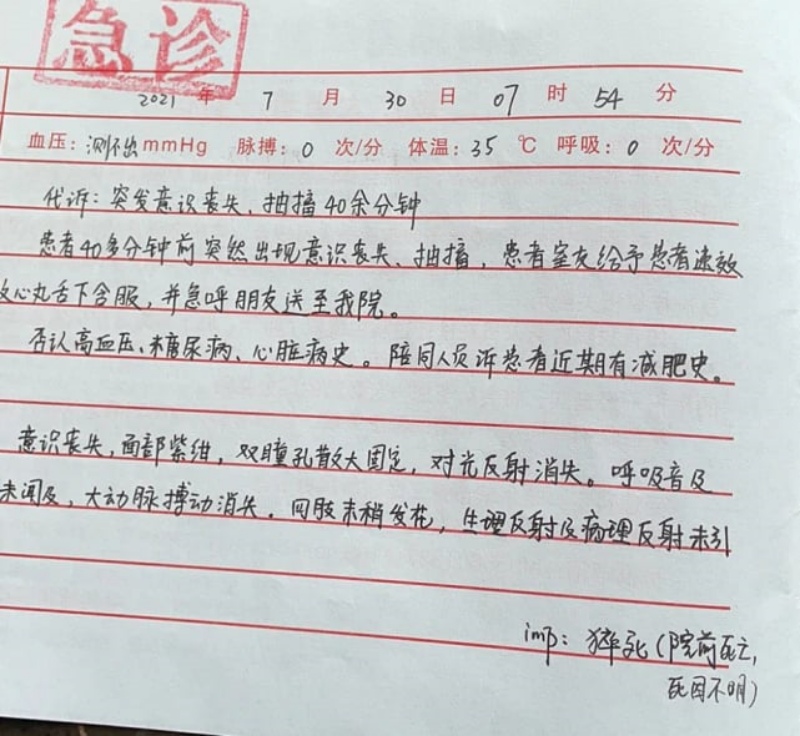 急诊
2021年 7月 30日 07时 54分
血压：测不出mmHg 脉搏：0 次/分 体温：35 ℃ 呼吸：0 次/分
代诉：突发意识丧失、抽搐40余分钟
患者40多分钟前突然出现意识丧失、抽搐，患者室友给予患者速效
救心丸舌下含服，并急呼朋友送至我院。
否认高血压、糖尿病、心脏病史。陪同人员诉患者近期有减肥史。
意识丧失，面部紫绀，双瞳孔散大固定，对光反射消失。呼吸音及
未闻及，大动脉搏动消失。四肢末稍发花，生理反射及病理反射未引
imp：猝死（院前死亡，
死因不明）